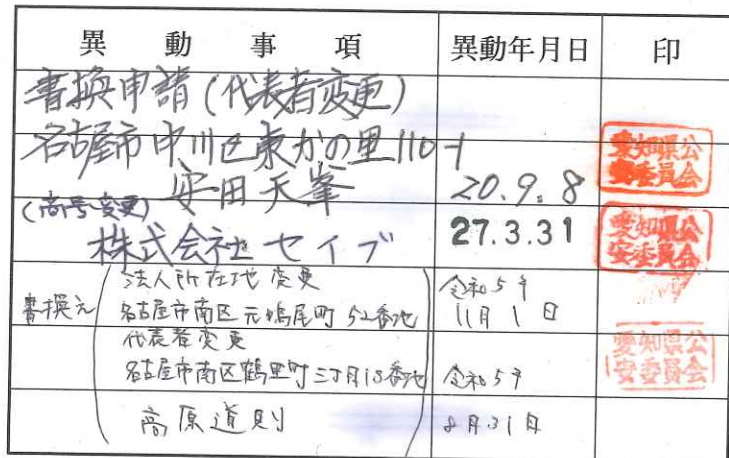 異動事項 異動年月日 印
書換申請(代表者変更)
名古屋市中川区東かの里110-1
安田天峯 20.9.8 愛知県公安委員会
(商号変更)
株式会社セイブ 27.3.31 愛知県公安委員会
書換え 法人所在地変更 令和5年
名古屋市南区元鳴尾町52番地 11月1日
代表者変更 愛知県公安委員会
名古屋市南区鶴里町三丁目18番地 令和5年
高原道則 8月31日